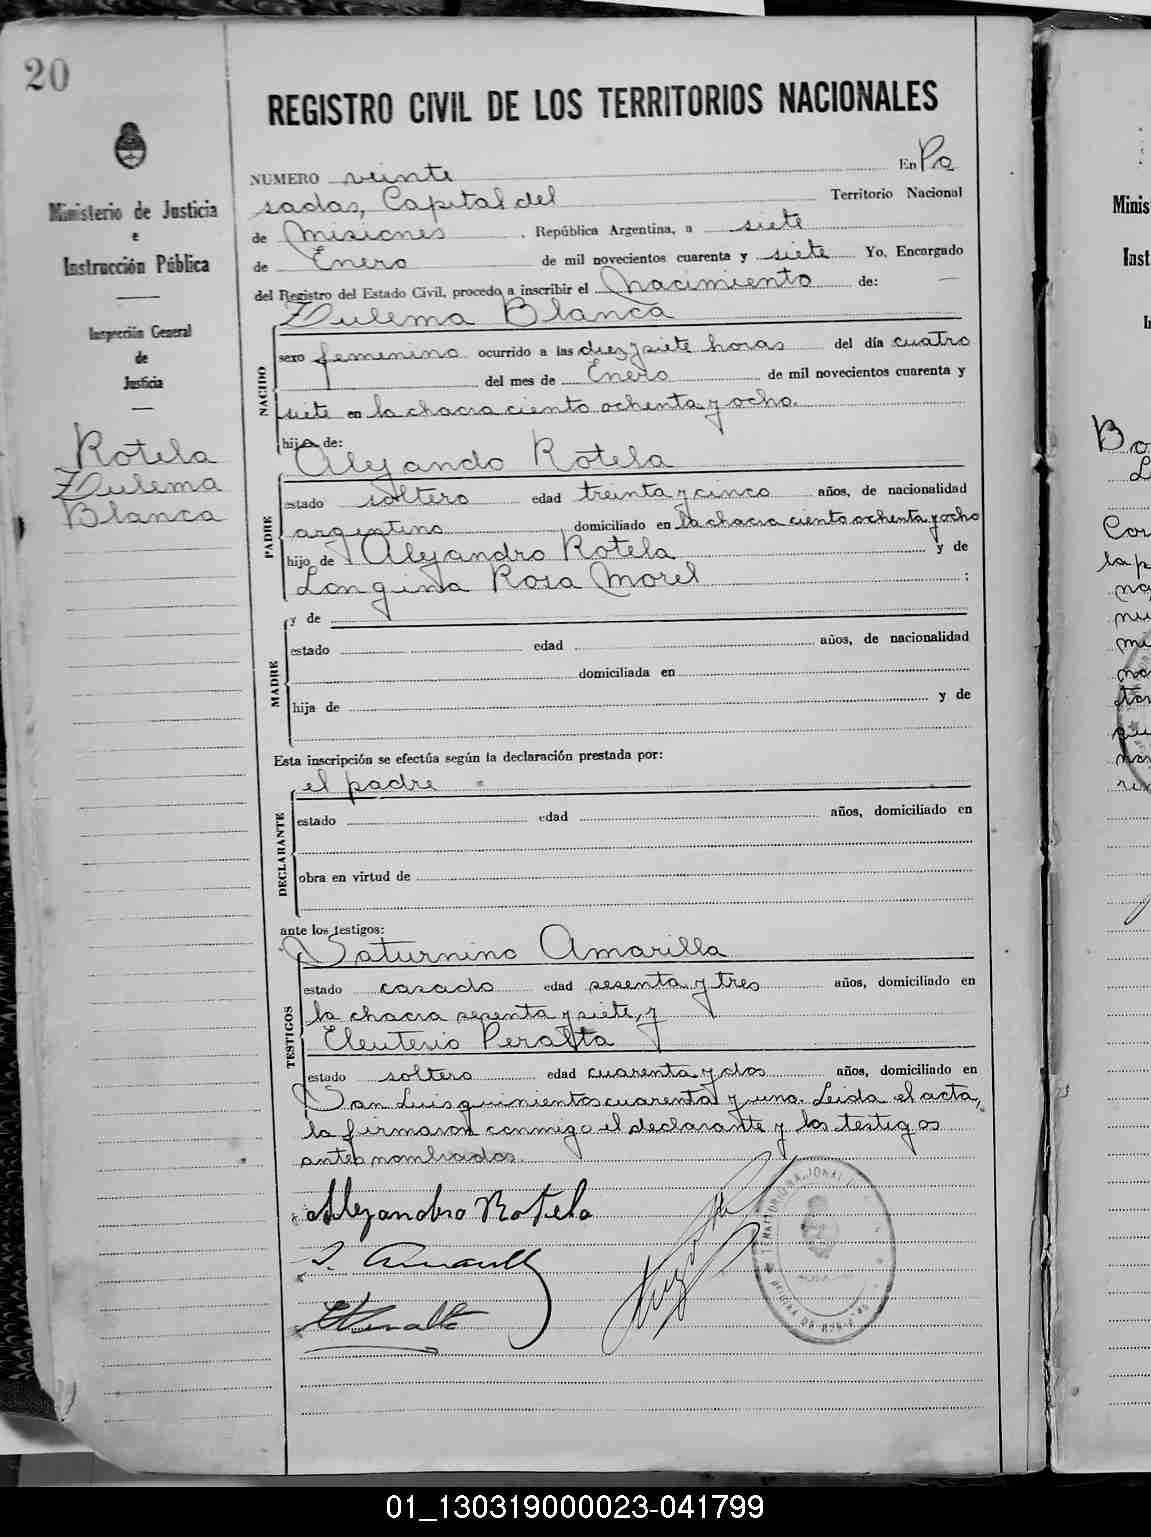 20
REGISTRO CIVIL DE LOS TERRITORIOS NACIONALES
Ministerio de Justicia
e
Instrucción Pública
Inspección General
de
Justicia
Rotela
Zulema
Blanca
NUMERO veinte En Po
sadas, Capital del Territorio Nacional
de Misiones, República Argentina, a siete
de Enero de mil novecientos cuarenta y siete Yo, Encargado
del Registro del Estado Civil, procedo a inscribir el Nacimiento de:
NACIDO
Zulema Blanca
sexo femenino ocurrido a las diez y siete horas del día cuatro
del mes de Enero de mil novecientos cuarenta y
siete en la chacra ciento ochenta y ocho.
hija de:
PADRE
Alejando Rotela
estado soltero edad treinta y cinco años, de nacionalidad
argentino domiciliado en la chacra ciento ochenta y ocho
hijo de Alejandro Rotela y de
Longina Rosa Morel ;
MADRE
y de
estado edad años, de nacionalidad
domiciliada en
hija de y de
Esta inscripción se efectúa según la declaración prestada por:
DECLARANTE
el padre
estado edad años, domiciliado en
obra en virtud de
ante los testigos:
TESTIGOS
Saturnino Amarilla
estado casado edad sesenta y tres años, domiciliado en
la chacra setenta y siete, y
Eleuterio Peralta
estado soltero edad cuarenta y dos años, domiciliado en
San Luis quinientos cuarenta y uno. Leida el acta,
la firmaron conmigo el declarante y los testigos
antes nombrados.
Alejandro Rotela
S. Amarilla
E Peralta
Minis
Inst
Bo
Cor
la p
01_130319000023-041799